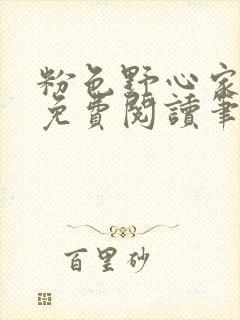 粉色野心家
免費閱讀筆
百里砂